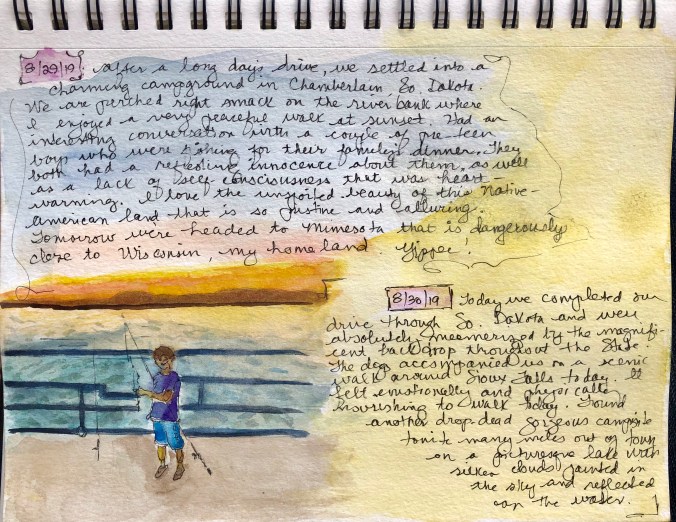 8/29/19. After a long day's drive, we settled into a
charming campground in Chamberlain, So. Dakota.
We are perched right smack on the river bank where
I enjoyed a very peaceful walk at sunset. Had an
interesting conversation with a couple of pre-teen
boys who were fishing for their family's dinner. They
both had a refreshing innocence about them, as well
as a lack of self consciousness that was heart-
warming. I love the unspoiled beauty of this Native-
American land that is so pristine and alluring.
Tomorrow we're headed to Minnesota that is dangerously
close to Wisconsin, my homeland. Yippee!
8/30/19 Today we completed our
drive through So. Dakota and were
absolutely mesmerized by the magnifi-
cent backdrop throughout the State.
The dogs accompanied us on a scenic
walk around Sioux Falls today. It
felt emotionally and physically
nourishing to walk today. Found
another drop dead gorgeous campsite
tonite many miles out of town
on a picturesque lake with
silken clouds painted in
the sky and reflected
on the water.